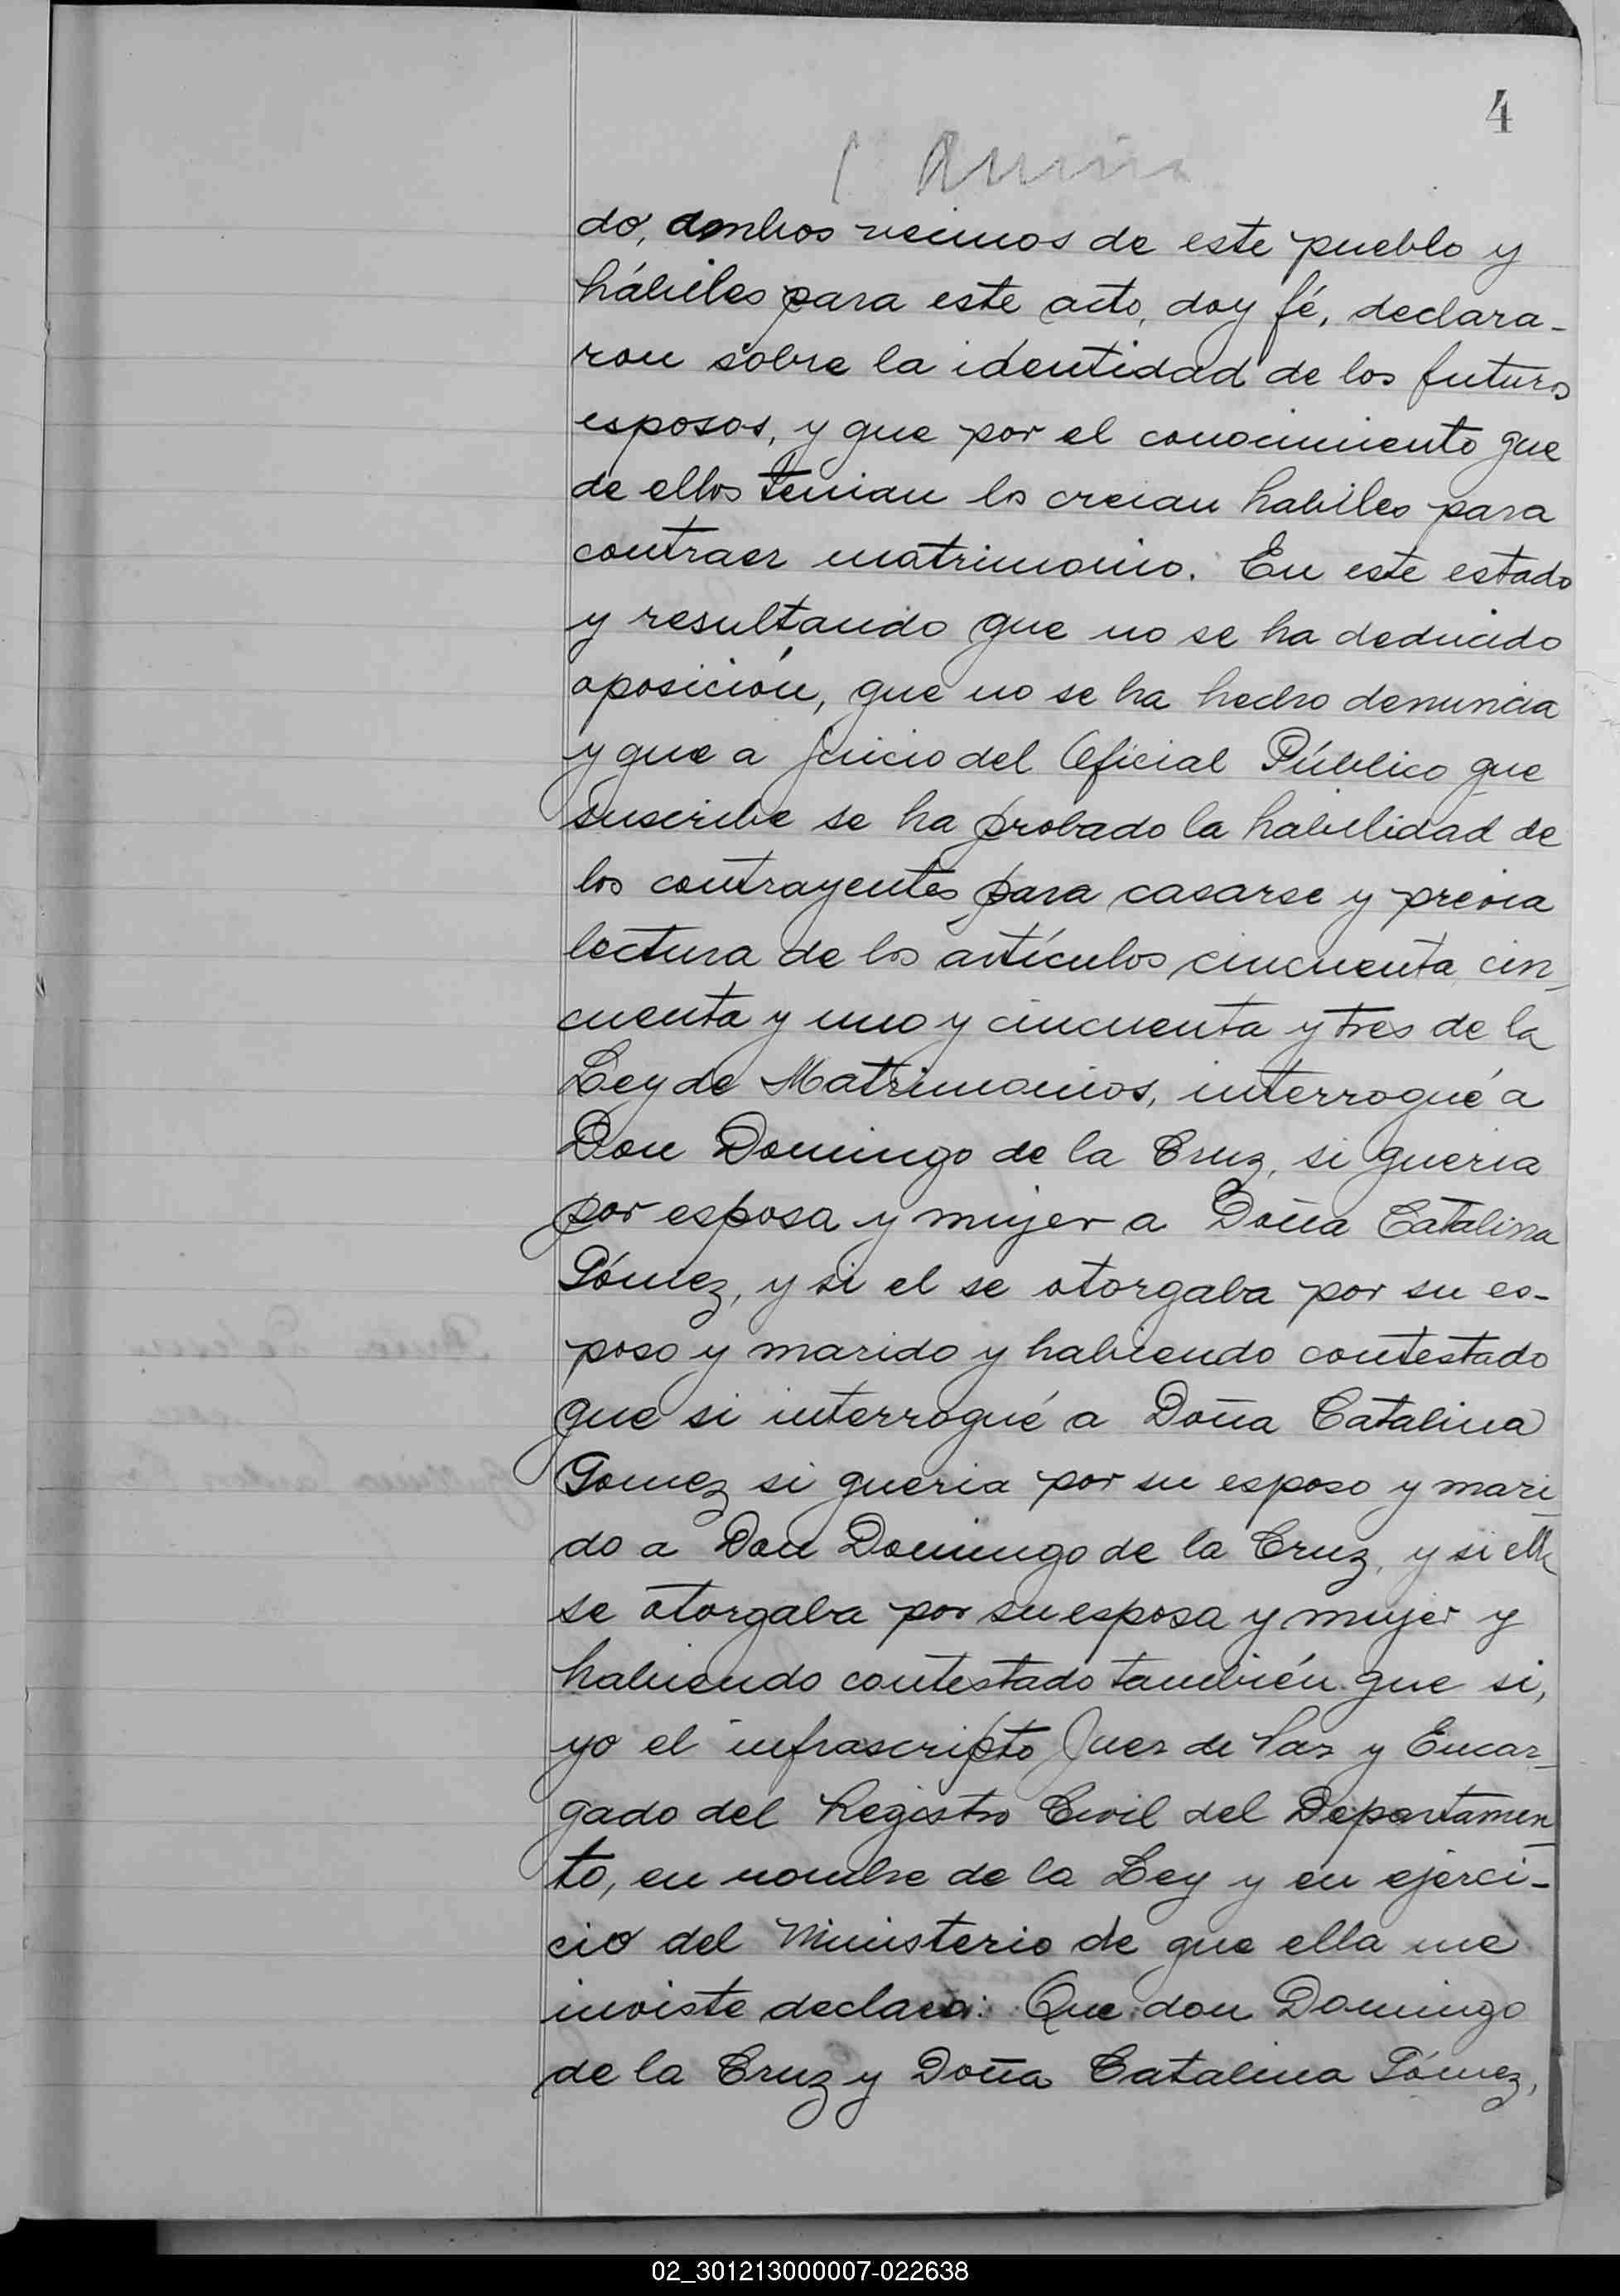 4
do, ambos vecinos de este pueblo y
hábiles para este acto, doy fé, declara-
ron sobre la identidad de los futuros
esposos, y que por el conocimiento que
de ellos tenian los creian habiles para
contraer matrimonio. En este estado
y resultando que no se ha deducido
oposición, que no se ha hecho denuncia
y que a juicio del Oficial Público que
suscribe se ha probado la habilidad de
los contrayentes para casarse y previa
lectura de los artículos cincuenta, cin-
cuenta y uno y cincuenta y tres de la
Ley de Matrimonios, interrogué a
Don Domingo de la Cruz, si queria
por esposa y mujer a Doña Catalina
Gómez, y si el se otorgaba por su es-
poso y marido y habiendo contestado
que si interrogué a Doña Catalina
Gomez si queria por su esposo y mari-
do a Don Domingo de la Cruz, y si ella
se otorgaba por su esposa y mujer y
habiendo contestado también que si,
yo el infrascripto Juez de Paz y Encar-
gado del Registro Civil del Departamen-
to, en nombre de la Ley y en ejerci-
cio del Ministerio de que ella me
inviste declaro: Que don Domingo
de la Cruz y Doña Catalina Gómez,
02_301213000007-022638